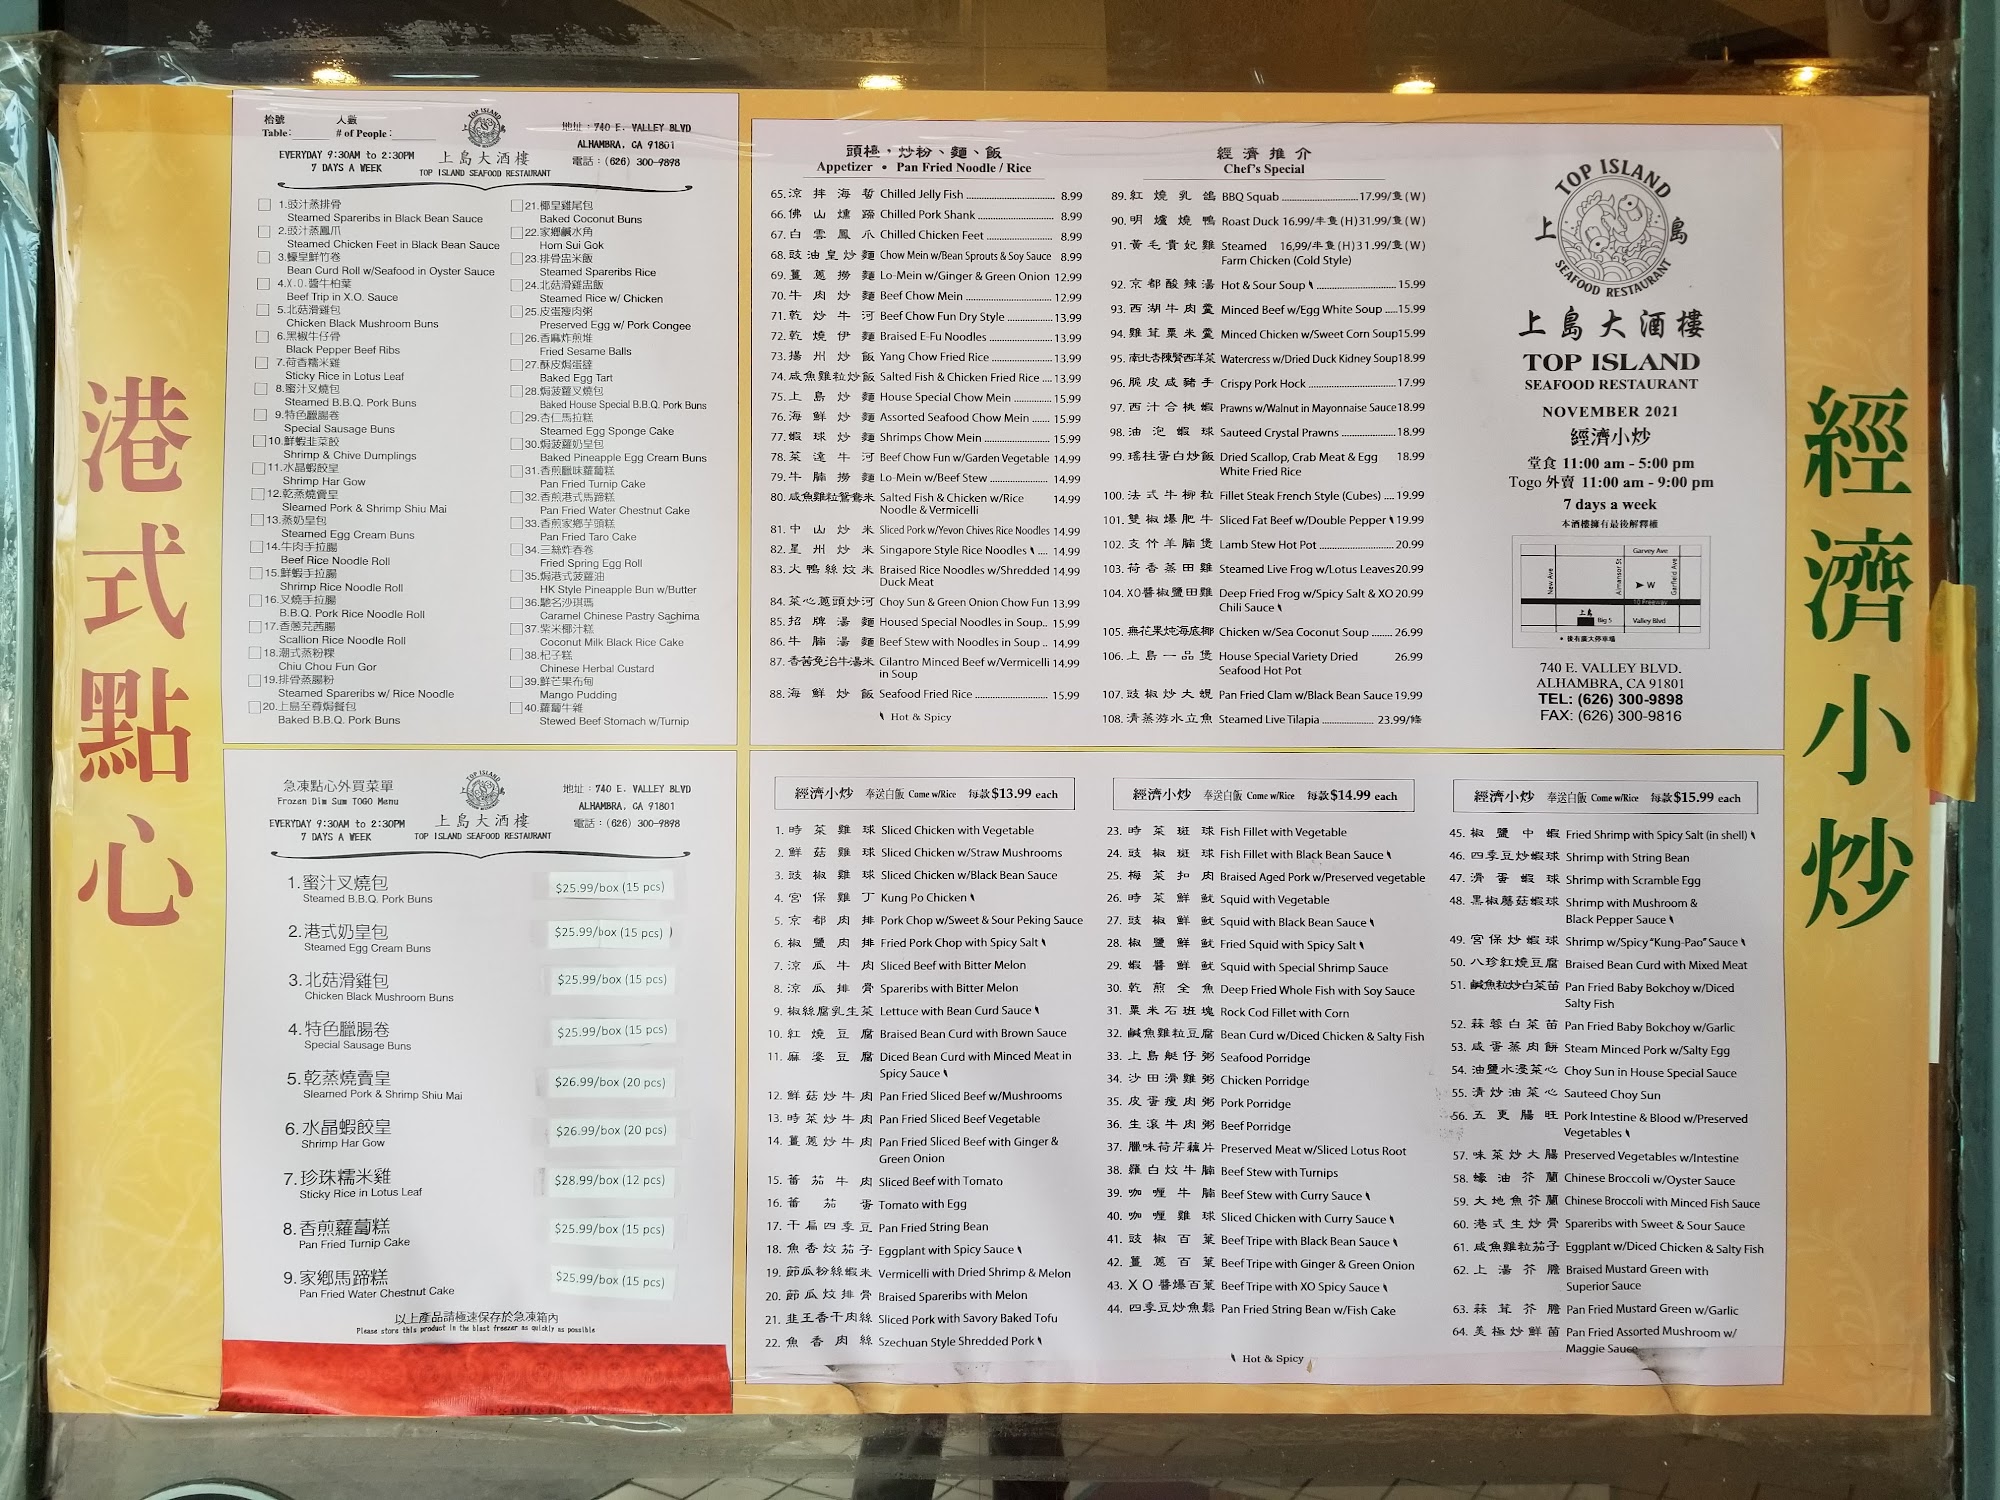 港式點心
枱號 人數
Table: # of People:
EVERYDAY 9:30AM to 2:30PM
7 DAYS A WEEK
TOP ISLAND
上島大酒樓
TOP ISLAND SEAFOOD RESTAURANT
地址：740 E. VALLEY BLVD
ALHAMBRA, CA 91801
電話：(626) 300-9898
1.豉汁蒸排骨
Steamed Spareribs in Black Bean Sauce
2.豉汁蒸鳳爪
Steamed Chicken Feet in Black Bean Sauce
3.蠔皇鮮竹卷
Bean Curd Roll w/Seafood in Oyster Sauce
4.X.O.醬牛柏葉
Beef Trip in X.O. Sauce
5.北菇滑雞包
Chicken Black Mushroom Buns
6.黑椒牛仔骨
Black Pepper Beef Ribs
7.荷香糯米雞
Sticky Rice in Lotus Leaf
8.蜜汁叉燒包
Steamed B.B.Q. Pork Buns
9.特色臘腸卷
Special Sausage Buns
10.鮮蝦韭菜餃
Shrimp & Chive Dumplings
11.水晶蝦餃皇
Shrimp Har Gow
12.乾蒸燒賣皇
Sleamed Pork & Shrimp Shiu Mai
13.蒸奶皇包
Steamed Egg Cream Buns
14.牛肉手拉腸
Beef Rice Noodle Roll
15.鮮蝦手拉腸
Shrimp Rice Noodle Roll
16.叉燒手拉腸
B.B.Q. Pork Rice Noodle Roll
17.香蔥芫茜腸
Scallion Rice Noodle Roll
18.潮式蒸粉粿
Chiu Chou Fun Gor
19.排骨蒸腸粉
Steamed Spareribs w/ Rice Noodle
20.上島至尊焗餐包
Baked B.B.Q. Pork Buns
21.椰皇雞尾包
Baked Coconut Buns
22.家鄉鹹水角
Hom Sui Gok
23.排骨盅米飯
Steamed Spareribs Rice
24.北菇滑雞盅飯
Steamed Rice w/ Chicken
25.皮蛋瘦肉粥
Preserved Egg w/ Pork Congee
26.香麻炸煎堆
Fried Sesame Balls
27.酥皮焗蛋撻
Baked Egg Tart
28.焗菠蘿叉燒包
Baked House Special B.B.Q. Pork Buns
29.杏仁馬拉糕
Steamed Egg Sponge Cake
30.焗菠蘿奶皇包
Baked Pineapple Egg Cream Buns
31.香煎臘味蘿蔔糕
Pan Fried Turnip Cake
32.香煎港式馬蹄糕
Pan Fried Water Chestnut Cake
33.香煎家鄉芋頭糕
Pan Fried Taro Cake
34.三絲炸春卷
Fried Spring Egg Roll
35.焗港式菠蘿油
HK Style Pineapple Bun w/Butter
36.馳名沙琪瑪
Caramel Chinese Pastry Sachima
37.紫米椰汁糕
Coconut Milk Black Rice Cake
38.杞子糕
Chinese Herbal Custard
39.鮮芒果布甸
Mango Pudding
40.蘿蔔牛雜
Stewed Beef Stomach w/Turnip
急凍點心外買菜單
Frozen Dim Sum TOGO Menu
EVERYDAY 9:30AM to 2:30PM
7 DAYS A WEEK
TOP ISLAND
上島大酒樓
TOP ISLAND SEAFOOD RESTAURANT
地址：740 E. VALLEY BLVD
ALHAMBRA, CA 91801
電話：(626) 300-9898
1.蜜汁叉燒包 $25.99/box (15 pcs)
Steamed B.B.Q. Pork Buns
2.港式奶皇包 $25.99/box (15 pcs)
Steamed Egg Cream Buns
3.北菇滑雞包 $25.99/box (15 pcs)
Chicken Black Mushroom Buns
4.特色臘腸卷 $25.99/box (15 pcs)
Special Sausage Buns
5.乾蒸燒賣皇 $26.99/box (20 pcs)
Sleamed Pork & Shrimp Shiu Mai
6.水晶蝦餃皇 $26.99/box (20 pcs)
Shrimp Har Gow
7.珍珠糯米雞 $28.99/box (12 pcs)
Sticky Rice in Lotus Leaf
8.香煎蘿蔔糕 $25.99/box (15 pcs)
Pan Fried Turnip Cake
9.家鄉馬蹄糕 $25.99/box (15 pcs)
Pan Fried Water Chestnut Cake
以上產品請極速保存於急凍箱內
Please store this product in the blast freezer as quickly as possible
頭檯，炒粉、麵、飯
Appetizer • Pan Fried Noodle / Rice
65.涼拌海蜇 Chilled Jelly Fish 8.99
66.佛山燻蹄 Chilled Pork Shank 8.99
67.白雲鳳爪 Chilled Chicken Feet 8.99
68.豉油皇炒麵 Chow Mein w/Bean Sprouts & Soy Sauce 8.99
69.薑蔥撈麵 Lo-Mein w/Ginger & Green Onion 12.99
70.牛肉炒麵 Beef Chow Mein 12.99
71.乾炒牛河 Beef Chow Fun Dry Style 13.99
72.乾燒伊麵 Braised E-Fu Noodles 13.99
73.揚州炒飯 Yang Chow Fried Rice 13.99
74.咸魚雞粒炒飯 Salted Fish & Chicken Fried Rice 13.99
75.上島炒麵 House Special Chow Mein 15.99
76.海鮮炒麵 Assorted Seafood Chow Mein 15.99
77.蝦球炒麵 Shrimps Chow Mein 15.99
78.菜遠牛河 Beef Chow Fun w/Garden Vegetable 14.99
79.牛腩撈麵 Lo-Mein w/Beef Stew 14.99
80.咸魚雞粒鴛鴦米 Salted Fish & Chicken w/Rice 14.99
Noodle & Vermicelli
81.中山炒米 Sliced Pork w/Yevon Chives Rice Noodles 14.99
82.星州炒米 Singapore Style Rice Noodles 14.99
83.火鴨絲炆米 Braised Rice Noodles w/Shredded 14.99
Duck Meat
84.菜心蔥頭炒河 Choy Sun & Green Onion Chow Fun 13.99
85.招牌湯麵 Housed Special Noodles in Soup.. 15.99
86.牛腩湯麵 Beef Stew with Noodles in Soup .. 14.99
87.香茜免治牛湯米 Cilantro Minced Beef w/Vermicelli 14.99
in Soup
88.海鮮炒飯 Seafood Fried Rice 15.99
Hot & Spicy
經濟推介
Chef's Special
89.紅燒乳鴿 BBQ Squab 17.99/隻(W)
90.明爐燒鴨 Roast Duck 16.99/半隻(H)31.99/隻(W)
91.黃毛貴妃雞 Steamed 16,99/半隻(H)31.99/隻(W)
Farm Chicken (Cold Style)
92.京都酸辣湯 Hot & Sour Soup 15.99
93.西湖牛肉羹 Minced Beef w/Egg White Soup 15.99
94.雞茸粟米羹 Minced Chicken w/Sweet Corn Soup 15.99
95.南北杏陳腎西洋菜 Watercress w/Dried Duck Kidney Soup 18.99
96.脆皮咸豬手 Crispy Pork Hock 17.99
97.西汁合桃蝦 Prawns w/Walnut in Mayonnaise Sauce 18.99
98.油泡蝦球 Sauteed Crystal Prawns 18.99
99.瑤柱蛋白炒飯 Dried Scallop, Crab Meat & Egg 18.99
White Fried Rice
100.法式牛柳粒 Fillet Steak French Style (Cubes) 19.99
101.雙椒爆肥牛 Sliced Fat Beef w/Double Pepper 19.99
102.支竹羊腩煲 Lamb Stew Hot Pot 20.99
103.荷香蒸田雞 Steamed Live Frog w/Lotus Leaves 20.99
104.XO醬椒鹽田雞 Deep Fried Frog w/Spicy Salt & XO 20.99
Chili Sauce
105.無花果炖海底椰 Chicken w/Sea Coconut Soup 26.99
106.上島一品煲 House Special Variety Dried 26.99
Seafood Hot Pot
107.豉椒炒大蜆 Pan Fried Clam w/Black Bean Sauce 19.99
108.清蒸游水立魚 Steamed Live Tilapia 23.99/條
TOP ISLAND
上島
SEAFOOD RESTAURANT
上島大酒樓
TOP ISLAND
SEAFOOD RESTAURANT
NOVEMBER 2021
經濟小炒
堂食 11:00 am - 5:00 pm
Togo 外賣 11:00 am - 9:00 pm
7 days a week
本酒樓擁有最後解釋權
Garvey Ave
New Ave
Almansor St
Garfield Ave
W
10 Freeway
上島
Big 5
Valley Blvd
• 後有廣大停車場
740 E. VALLEY BLVD.
ALHAMBRA, CA 91801
TEL: (626) 300-9898
FAX: (626) 300-9816
經濟小炒 奉送白飯 Come w/Rice 每款$13.99 each
1.時菜雞球 Sliced Chicken with Vegetable
2.鮮菇雞球 Sliced Chicken w/Straw Mushrooms
3.豉椒雞球 Sliced Chicken w/Black Bean Sauce
4.宮保雞丁 Kung Po Chicken
5.京都肉排 Pork Chop w/Sweet & Sour Peking Sauce
6.椒鹽肉排 Fried Pork Chop with Spicy Salt
7.涼瓜牛肉 Sliced Beef with Bitter Melon
8.涼瓜排骨 Spareribs with Bitter Melon
9.椒絲腐乳生菜 Lettuce with Bean Curd Sauce
10.紅燒豆腐 Braised Bean Curd with Brown Sauce
11.麻婆豆腐 Diced Bean Curd with Minced Meat in
Spicy Sauce
12.鮮菇炒牛肉 Pan Fried Sliced Beef w/Mushrooms
13.時菜炒牛肉 Pan Fried Sliced Beef Vegetable
14.薑蔥炒牛肉 Pan Fried Sliced Beef with Ginger &
Green Onion
15.蕃茄牛肉 Sliced Beef with Tomato
16.蕃茄蛋 Tomato with Egg
17.干扁四季豆 Pan Fried String Bean
18.魚香炆茄子 Eggplant with Spicy Sauce
19.節瓜粉絲蝦米 Vermicelli with Dried Shrimp & Melon
20.節瓜炆排骨 Braised Spareribs with Melon
21.韭王香干肉絲 Sliced Pork with Savory Baked Tofu
22.魚香肉絲 Szechuan Style Shredded Pork
經濟小炒 奉送白飯 Come w/Rice 每款$14.99 each
23.時菜斑球 Fish Fillet with Vegetable
24.豉椒斑球 Fish Fillet with Black Bean Sauce
25.梅菜扣肉 Braised Aged Pork w/Preserved vegetable
26.時菜鮮魷 Squid with Vegetable
27.豉椒鮮魷 Squid with Black Bean Sauce
28.椒鹽鮮魷 Fried Squid with Spicy Salt
29.蝦醬鮮魷 Squid with Special Shrimp Sauce
30.乾煎全魚 Deep Fried Whole Fish with Soy Sauce
31.粟米石斑塊 Rock Cod Fillet with Corn
32.鹹魚雞粒豆腐 Bean Curd w/Diced Chicken & Salty Fish
33.上島艇仔粥 Seafood Porridge
34.沙田滑雞粥 Chicken Porridge
35.皮蛋瘦肉粥 Pork Porridge
36.生滾牛肉粥 Beef Porridge
37.臘味荷芹藕片 Preserved Meat w/Sliced Lotus Root
38.蘿白炆牛腩 Beef Stew with Turnips
39.咖喱牛腩 Beef Stew with Curry Sauce
40.咖喱雞球 Sliced Chicken with Curry Sauce
41.豉椒百葉 Beef Tripe with Black Bean Sauce
42.薑蔥百葉 Beef Tripe with Ginger & Green Onion
43.XO醬爆百葉 Beef Tripe with XO Spicy Sauce
44.四季豆炒魚鬆 Pan Fried String Bean w/Fish Cake
Hot & Spicy
經濟小炒 奉送白飯 Come w/Rice 每款$15.99 each
45.椒鹽中蝦 Fried Shrimp with Spicy Salt (in shell)
46.四季豆炒蝦球 Shrimp with String Bean
47.滑蛋蝦球 Shrimp with Scramble Egg
48.黑椒蘑菇蝦球 Shrimp with Mushroom &
Black Pepper Sauce
49.宮保炒蝦球 Shrimp w/Spicy "Kung-Pao" Sauce
50.八珍紅燒豆腐 Braised Bean Curd with Mixed Meat
51.鹹魚粒炒白菜苗 Pan Fried Baby Bokchoy w/Diced
Salty Fish
52.蒜蓉白菜苗 Pan Fried Baby Bokchoy w/Garlic
53.咸蛋蒸肉餅 Steam Minced Pork w/Salty Egg
54.油鹽水浸菜心 Choy Sun in House Special Sauce
55.清炒油菜心 Sauteed Choy Sun
56.五更腸旺 Pork Intestine & Blood w/Preserved
Vegetables
57.味菜炒大腸 Preserved Vegetables w/Intestine
58.蠔油芥蘭 Chinese Broccoli w/Oyster Sauce
59.大地魚芥蘭 Chinese Broccoli with Minced Fish Sauce
60.港式生炒骨 Spareribs with Sweet & Sour Sauce
61.咸魚雞粒茄子 Eggplant w/Diced Chicken & Salty Fish
62.上湯芥膽 Braised Mustard Green with
Superior Sauce
63.蒜茸芥膽 Pan Fried Mustard Green w/Garlic
64.美極炒鮮菌 Pan Fried Assorted Mushroom w/
Maggie Sauce
經濟小炒